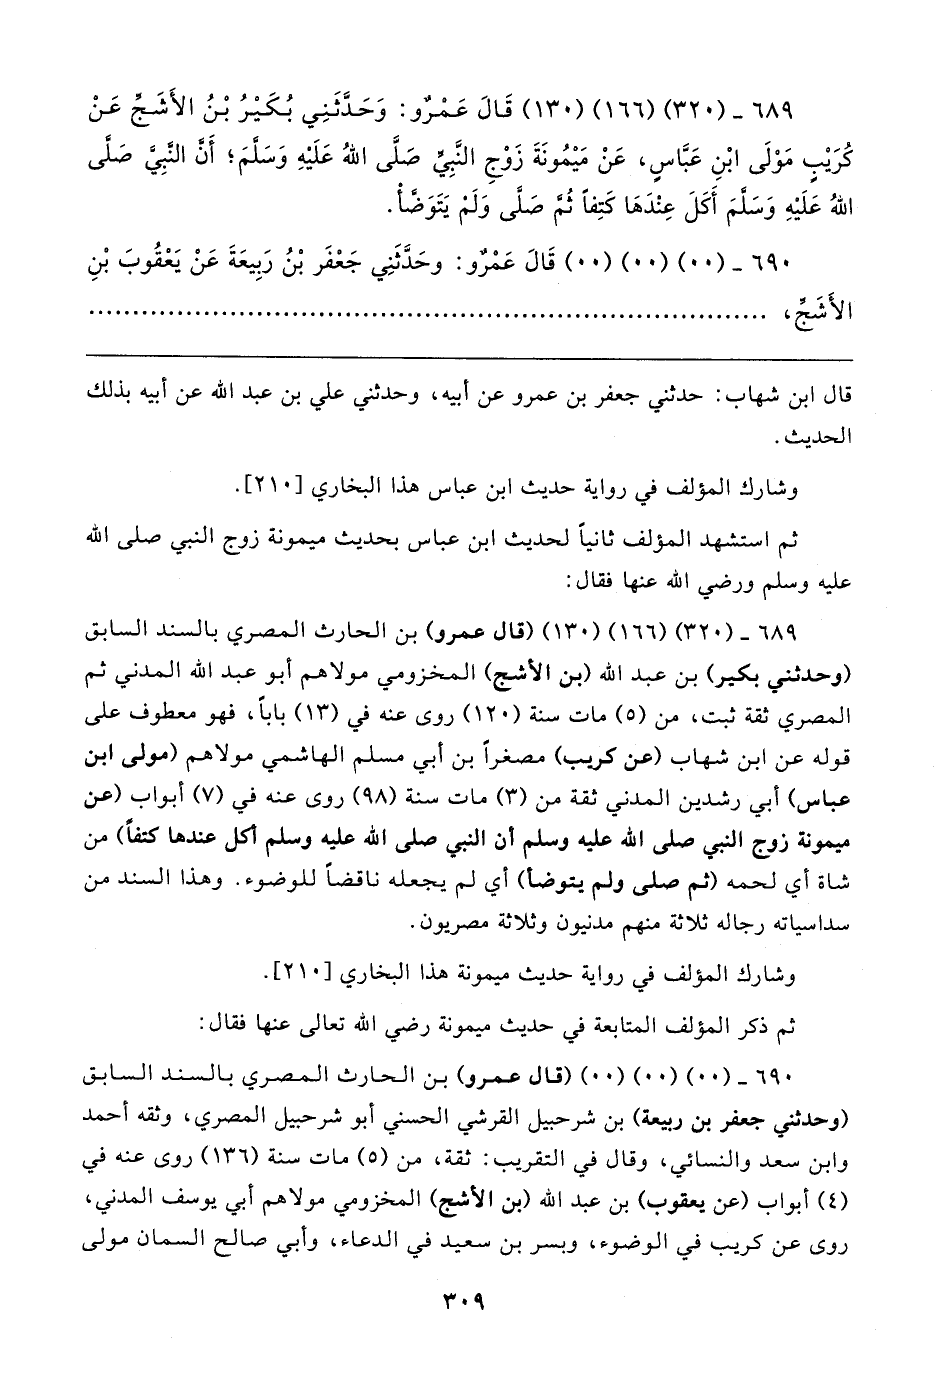 ٦٨٩ ـ (٣٢٠) (١٦٦) (١٣٠) قَالَ عَمْرٌو: وَحَدَّثَنِي بُكَيْرُ بْنُ الأَشَجِّ عَنْ
كُرَيْبٍ مَوْلَى ابْنِ عَبَّاسٍ، عَنْ مَيْمُونَةَ زَوْجِ النَّبِيِّ صَلَّى اللهُ عَلَيْهِ وَسَلَّمَ؛ أَنَّ النَّبِيَّ صَلَّى
اللهُ عَلَيْهِ وَسَلَّمَ أَكَلَ عِنْدَهَا كَتِفاً ثُمَّ صَلَّى وَلَمْ يَتَوَضَّأْ.
٦٩٠ ـ (٠٠) (٠٠) (٠٠) قَالَ عَمْرٌو: وحَدَّثَنِي جَعْفَر بْنُ رَبِيعَةَ عَنْ يَعْقُوبَ بْنِ
الأَشَجِّ، ................................................................................
قال ابن شهاب: حدثني جعفر بن عمرو عن أبيه، وحدثني علي بن عبد الله عن أبيه بذلك
الحديث.
وشارك المؤلف في رواية حديث ابن عباس هذا البخاري [٢١٠].
ثم استشهد المؤلف ثانياً لحديث ابن عباس بحديث ميمونة زوج النبي صلى الله
عليه وسلم ورضي الله عنها فقال:
٦٨٩ ـ (٣٢٠) (١٦٦) (١٣٠) (قال عمرو) بن الحارث المصري بالسند السابق
(وحدثني بكير) بن عبد الله (بن الأشج) المخزومي مولاهم أبو عبد الله المدني ثم
المصري ثقة ثبت، من (٥) مات سنة (١٢٠) روى عنه في (١٣) باباً، فهو معطوف على
قوله عن ابن شهاب (عن كريب) مصغراً بن أبي مسلم الهاشمي مولاهم (مولى ابن
عباس) أبي رشدين المدني ثقة من (٣) مات سنة (٩٨) روى عنه في (٧) أبواب (عن
ميمونة زوج النبي صلى الله عليه وسلم أن النبي صلى الله عليه وسلم أكل عندها كتفاً) من
شاة أي لحمه (ثم صلى ولم يتوضأ) أي لم يجعله ناقضاً للوضوء. وهذا السند من
سداسياته رجاله ثلاثة منهم مدنيون وثلاثة مصريون.
وشارك المؤلف في رواية حديث ميمونة هذا البخاري [٢١٠].
ثم ذكر المؤلف المتابعة في حديث ميمونة رضي الله تعالى عنها فقال:
٦٩٠ ـ (٠٠) (٠٠) (٠٠) (قال عمرو) بن الحارث المصري بالسند السابق
(وحدثني جعفر بن ربيعة) بن شرحبيل القرشي الحسني أبو شرحبيل المصري، وثقه أحمد
وابن سعد والنسائي، وقال في التقريب: ثقة، من (٥) مات سنة (١٣٦) روى عنه في
(٤) أبواب (عن يعقوب) بن عبد الله (بن الأشج) المخزومي مولاهم أبي يوسف المدني،
روى عن كريب في الوضوء، وبسر بن سعيد في الدعاء، وأبي صالح السمان مولى
٣٠٩